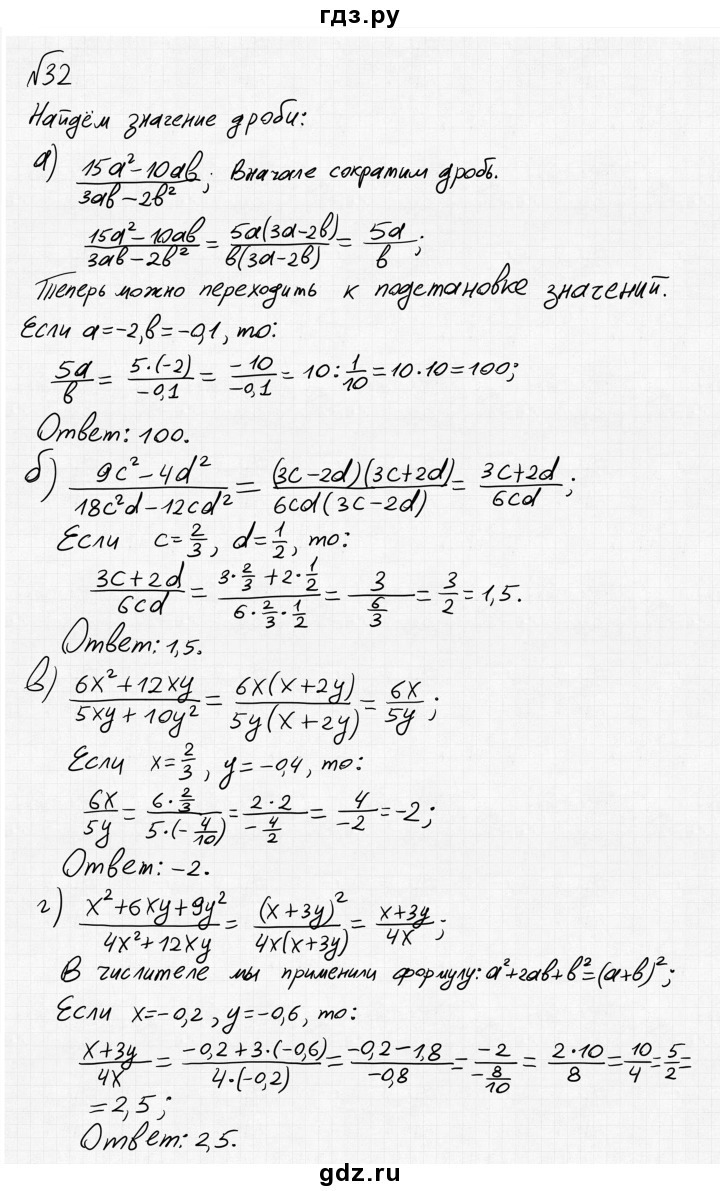 гдз.ру
№32
Найдём значение дроби:
а) (15a²-10ab)/(3ab-2b²); Вначале сократим дробь.
(15a²-10ab)/(3ab-2b²) = (5a(3a-2b))/(b(3a-2b)) = 5a/b;
Теперь можно переходить к подстановке значений.
Если a=-2, b=-0,1, то:
5a/b = (5·(-2))/(-0,1) = (-10)/(-0,1) = 10:1/10 = 10·10=100;
Ответ: 100.
б) (9c²-4d²)/(18c²d-12cd²) = ((3c-2d)(3c+2d))/(6cd(3c-2d)) = (3c+2d)/(6cd);
Если c=2/3, d=1/2, то:
(3c+2d)/(6cd) = (3·2/3+2·1/2)/(6·2/3·1/2) = 3/(6/3) = 3/2 = 1,5.
Ответ: 1,5.
в) (6x²+12xy)/(5xy+10y²) = (6x(x+2y))/(5y(x+2y)) = 6x/5y;
Если x=2/3, y=-0,4, то:
6x/5y = (6·2/3)/(5·(-4/10)) = (2·2)/(-4/2) = 4/-2 = -2;
Ответ: -2.
г) (x²+6xy+9y²)/(4x²+12xy) = (x+3y)²/(4x(x+3y)) = (x+3y)/4x;
В числителе мы применили формулу: a²+2ab+b²=(a+b)²;
Если x=-0,2, y=-0,6, то:
(x+3y)/4x = (-0,2+3·(-0,6))/(4·(-0,2)) = (-0,2-1,8)/(-0,8) = (-2)/(-8/10) = (2·10)/8 = 10/4 = 5/2 =
=2,5;
Ответ: 2,5.
gdz.ru